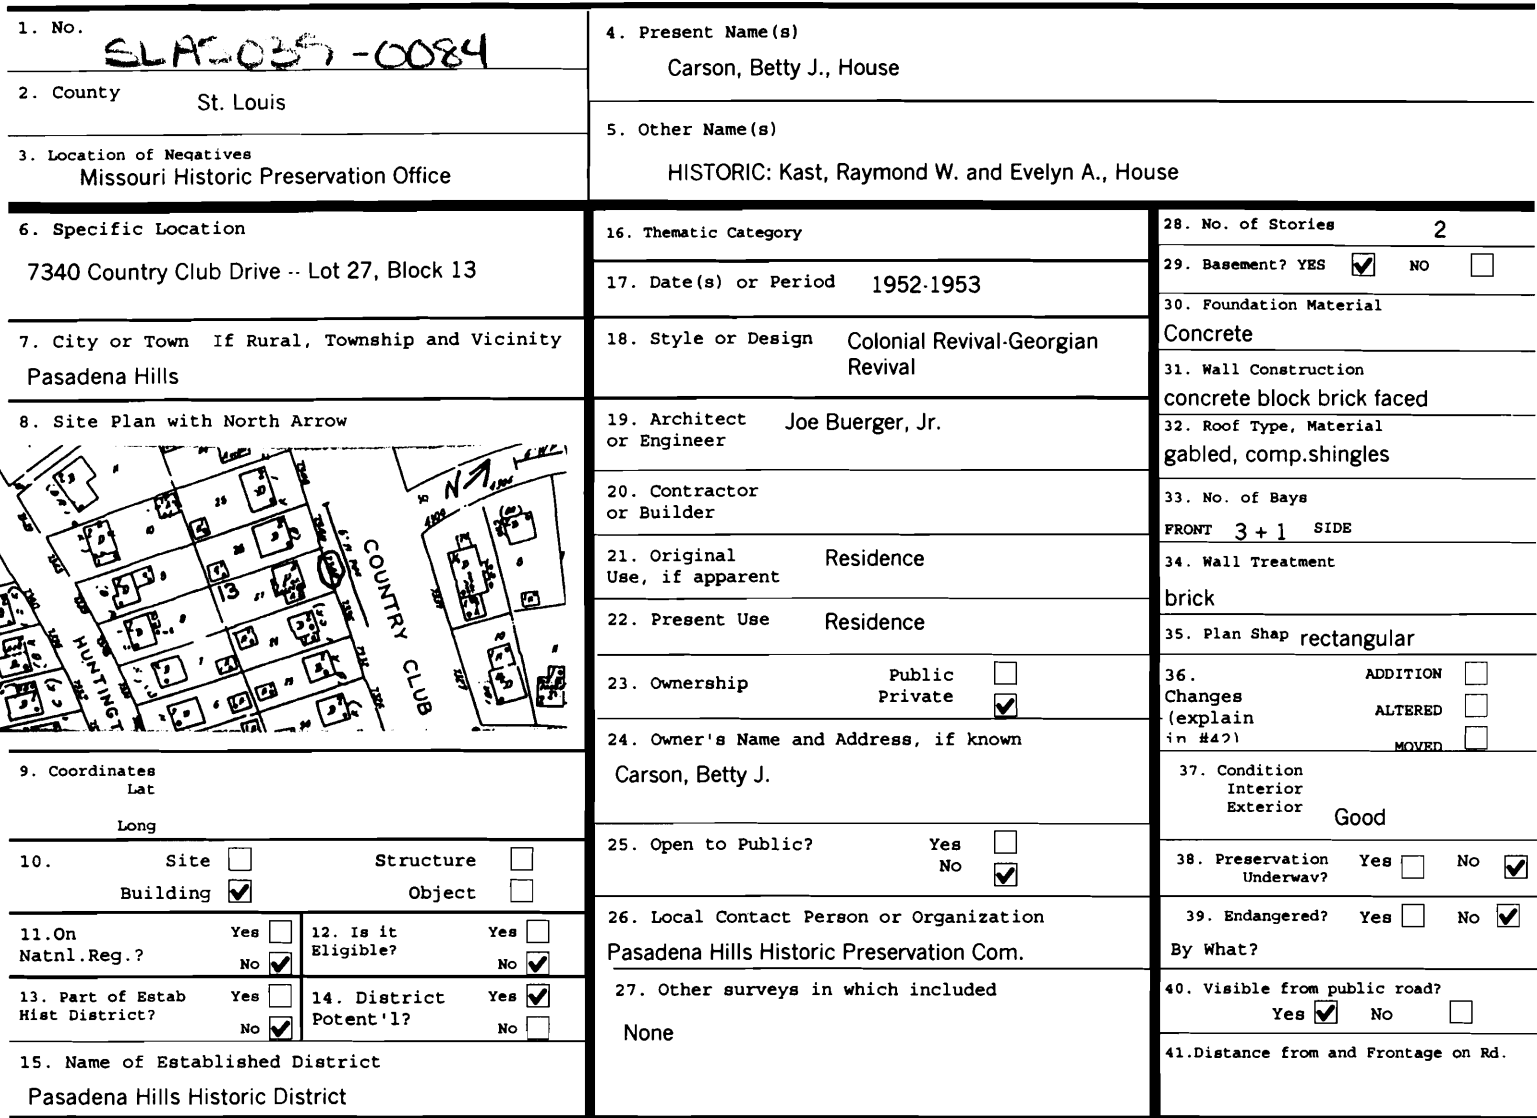 1. No.
SLAS035-0084
2. County
St. Louis
3. Location of Negatives
Missouri Historic Preservation Office
4. Present Name(s)
Carson, Betty J., House
5. Other Name(s)
HISTORIC: Kast, Raymond W. and Evelyn A., House
6. Specific Location
7340 Country Club Drive -- Lot 27, Block 13
7. City or Town If Rural, Township and Vicinity
Pasadena Hills
8. Site Plan with North Arrow
N
COUNTRY CLUB
HUNTINGT
13
9. Coordinates
Lat
Long
10. Site Structure
Building Object
11.On Yes
Natnl.Reg.? No
12. Is it Yes
Eligible? No
13. Part of Estab Yes
Hist District? No
14. District Yes
Potent'l? No
15. Name of Established District
Pasadena Hills Historic District
16. Thematic Category
17. Date(s) or Period 1952-1953
18. Style or Design Colonial Revival-Georgian
Revival
19. Architect Joe Buerger, Jr.
or Engineer
20. Contractor
or Builder
21. Original Residence
Use, if apparent
22. Present Use Residence
23. Ownership Public
Private
24. Owner's Name and Address, if known
Carson, Betty J.
25. Open to Public? Yes
No
26. Local Contact Person or Organization
Pasadena Hills Historic Preservation Com.
27. Other surveys in which included
None
28. No. of Stories 2
29. Basement? YES NO
30. Foundation Material
Concrete
31. Wall Construction
concrete block brick faced
32. Roof Type, Material
gabled, comp.shingles
33. No. of Bays
FRONT 3 + 1 SIDE
34. Wall Treatment
brick
35. Plan Shap rectangular
36. ADDITION
Changes
(explain ALTERED
in #42)
MOVED
37. Condition
Interior
Exterior Good
38. Preservation Yes No
Underway?
39. Endangered? Yes No
By What?
40. Visible from public road?
Yes No
41.Distance from and Frontage on Rd.